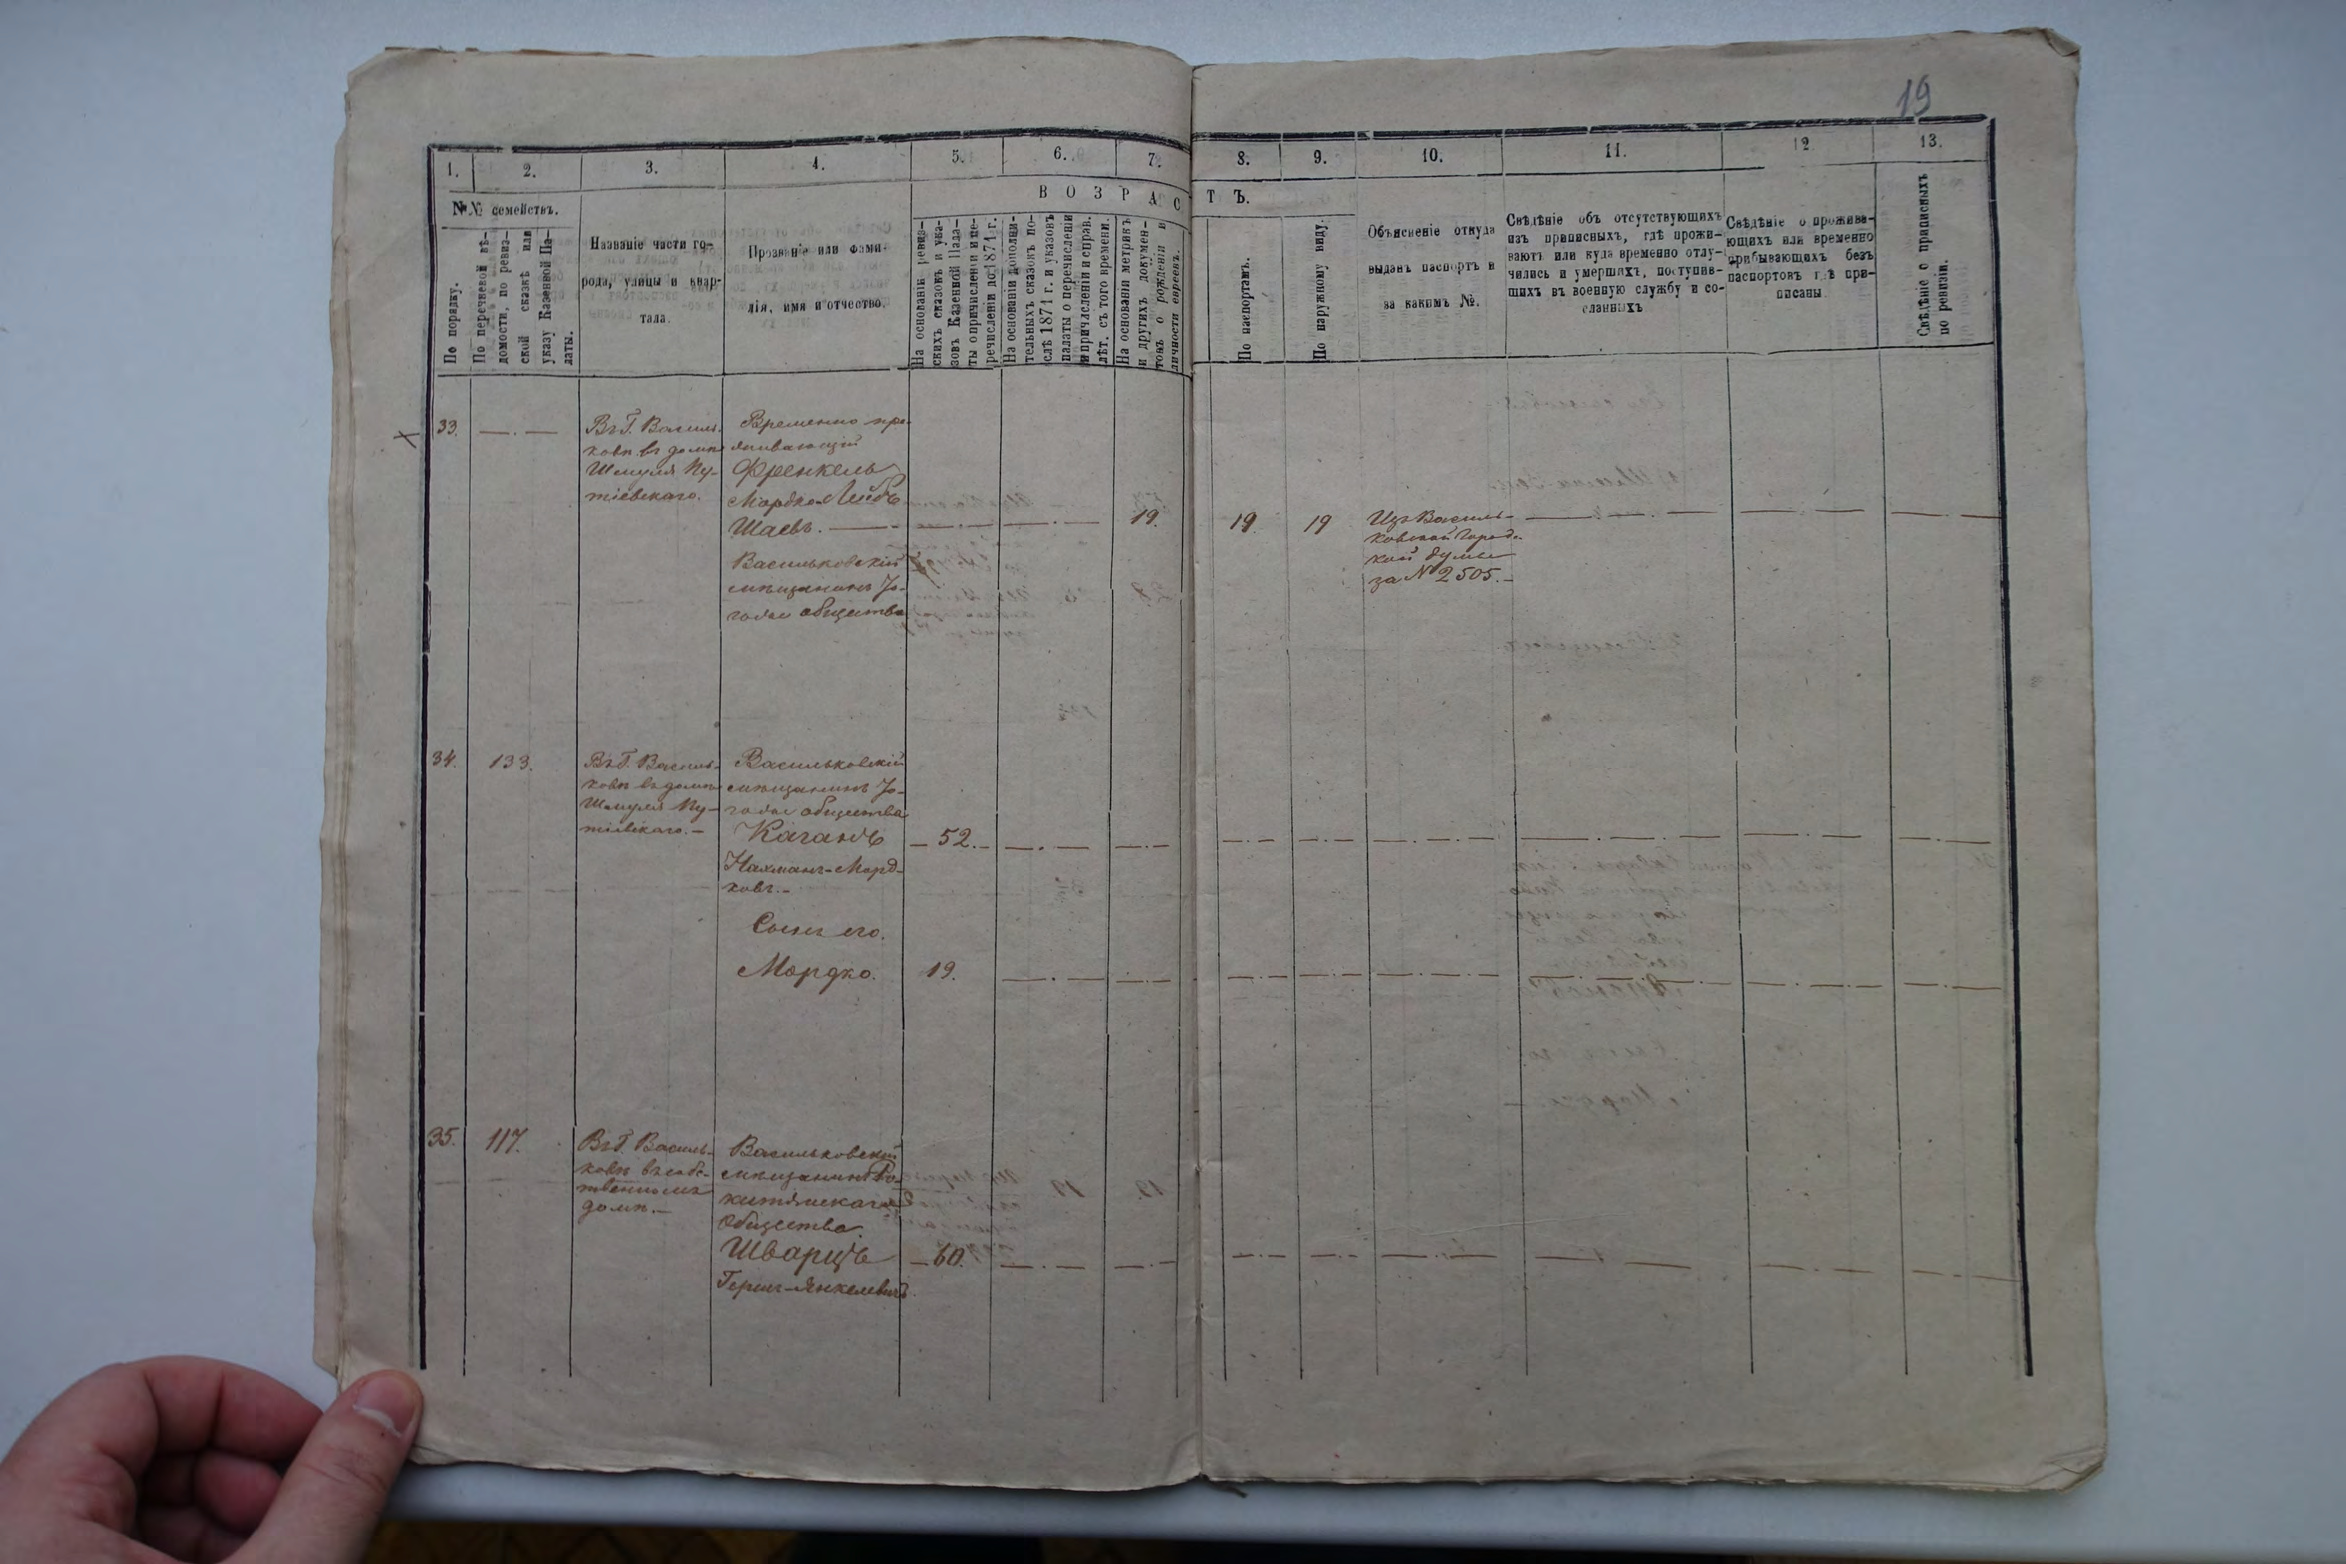 19
1.
2.
3.
4.
5.
6.
7.
8.
9.
10.
11.
12
13.
№№ семействъ.
ВОЗРАСТЪ.
По порядку.
По перечневой вѣ-
домости, по ревиз-
ской сказкѣ или
указу Казенной Па-
латы.
Названіе части го-
рода, улицы и квар-
тала.
Прозваніе или фами-
лія, имя и отчество.
На основаніи ревиз-
скихъ сказокъ и ука-
зовъ Казенной Пала-
ты о причисленіи и пе-
речисленіи до 1871 г.
На основаніи дополни-
тельныхъ сказокъ по-
слѣ 1871 г. и указовъ
палаты о перечисленіи
и причисленіи и справ.
лѣт. съ того времени.
На основаніи метрикъ
и другихъ докумен-
товъ о рожденіи и
личности евреевъ.
По паспортамъ.
По наружному виду.
Объясненіе откуда
выданъ паспортъ и
за какимъ №.
Свѣдѣніе объ отсутствующихъ
изъ приписныхъ, гдѣ прожи-
ваютъ или куда временно отлу-
чились и умершихъ, поступив-
шихъ въ военную службу и со-
сланныхъ
Свѣдѣніе о прожива-
ющихъ или временно
прибывающихъ безъ
паспортовъ гдѣ при-
писаны
Свѣдѣніе о приписныхъ
по ревизіи.
33.
Въ Г. Василь-
ковѣ въ домѣ
Шмуля Пу-
тіевскаго.
Временно про-
живающій
Френкель
Мордко-Лейбъ
Шаевъ.
Васильковскій
мѣщанинъ Іо-
годес общества
19.
19
19
Изъ Василь-
ковской Городс-
кой думы
за № 2505.
34.
133.
Въ Г. Василь-
ковѣ въ домѣ
Шмуля Пу-
тіевскаго.
Васильковскій
мѣщанинъ Іо-
годес общества
Каганъ
52.
Нахманъ-Морд-
ковъ.
Сынъ его.
Мордко.
19.
35.
117.
Въ Г. Василь-
ковѣ въ собс-
твенномъ
домѣ.
Васильковскій
мѣщанинъ Ро-
китянскаго
Общества
Шварцъ
60.
Гершъ-Янкелевичъ.